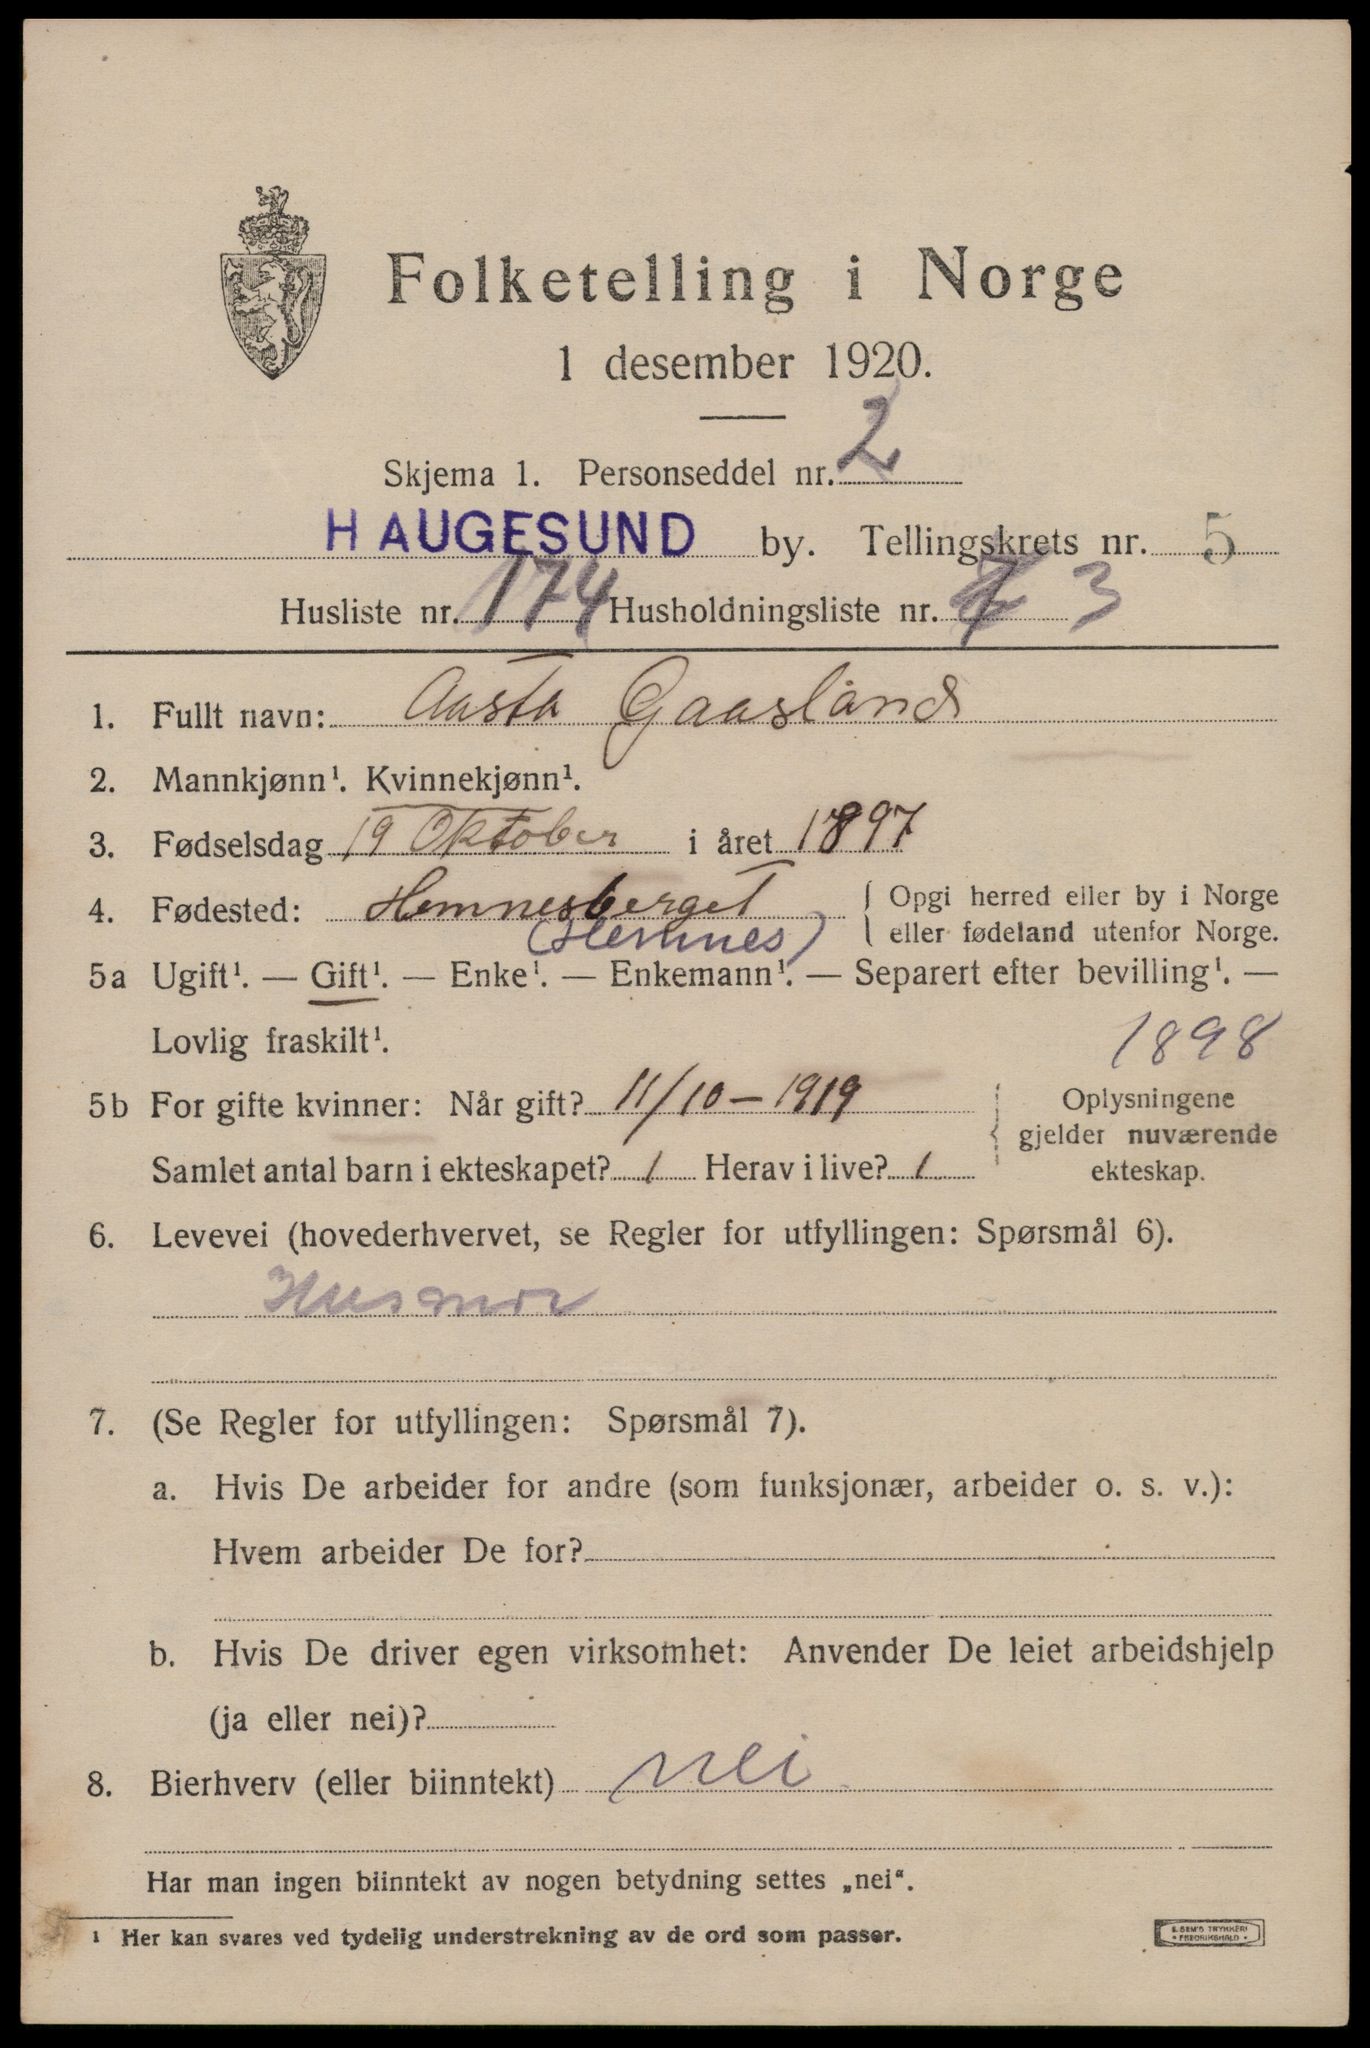 Folketelling i Norge
1 desember 1920.
Skjema 1. Personseddel nr. 2
HAUGESUND by. Tellingskrets nr. 5
Husliste nr. 174 Husholdningsliste nr. 3
1. Fullt navn: Aasta Gaasland
2. Mannkjønn¹. Kvinnekjønn¹.
3. Fødselsdag 19 Oktober i året 1897
4. Fødested: Hemnesberget { Opgi herred eller by i Norge
(Hemnes) eller fødeland utenfor Norge.
5a Ugift¹. — Gift¹. — Enke¹. — Enkemann¹. — Separert efter bevilling¹. —
Lovlig fraskilt¹. 1898
5b For gifte kvinner: Når gift? 11/10-1919 { Oplysningene
gjelder nuværende
Samlet antal barn i ekteskapet? 1 Herav i live? 1 ekteskap.
6. Levevei (hovederhvervet, se Regler for utfyllingen: Spørsmål 6).
Husmor
7. (Se Regler for utfyllingen: Spørsmål 7).
a. Hvis De arbeider for andre (som funksjonær, arbeider o. s. v.):
Hvem arbeider De for?
b. Hvis De driver egen virksomhet: Anvender De leiet arbeidshjelp
(ja eller nei)?
8. Bierhverv (eller biinntekt) nei
Har man ingen biinntekt av nogen betydning settes „nei“.
¹ Her kan svares ved tydelig understrekning av de ord som passer.
E. SEM'S TRYKKERI
FREDRIKSHALD